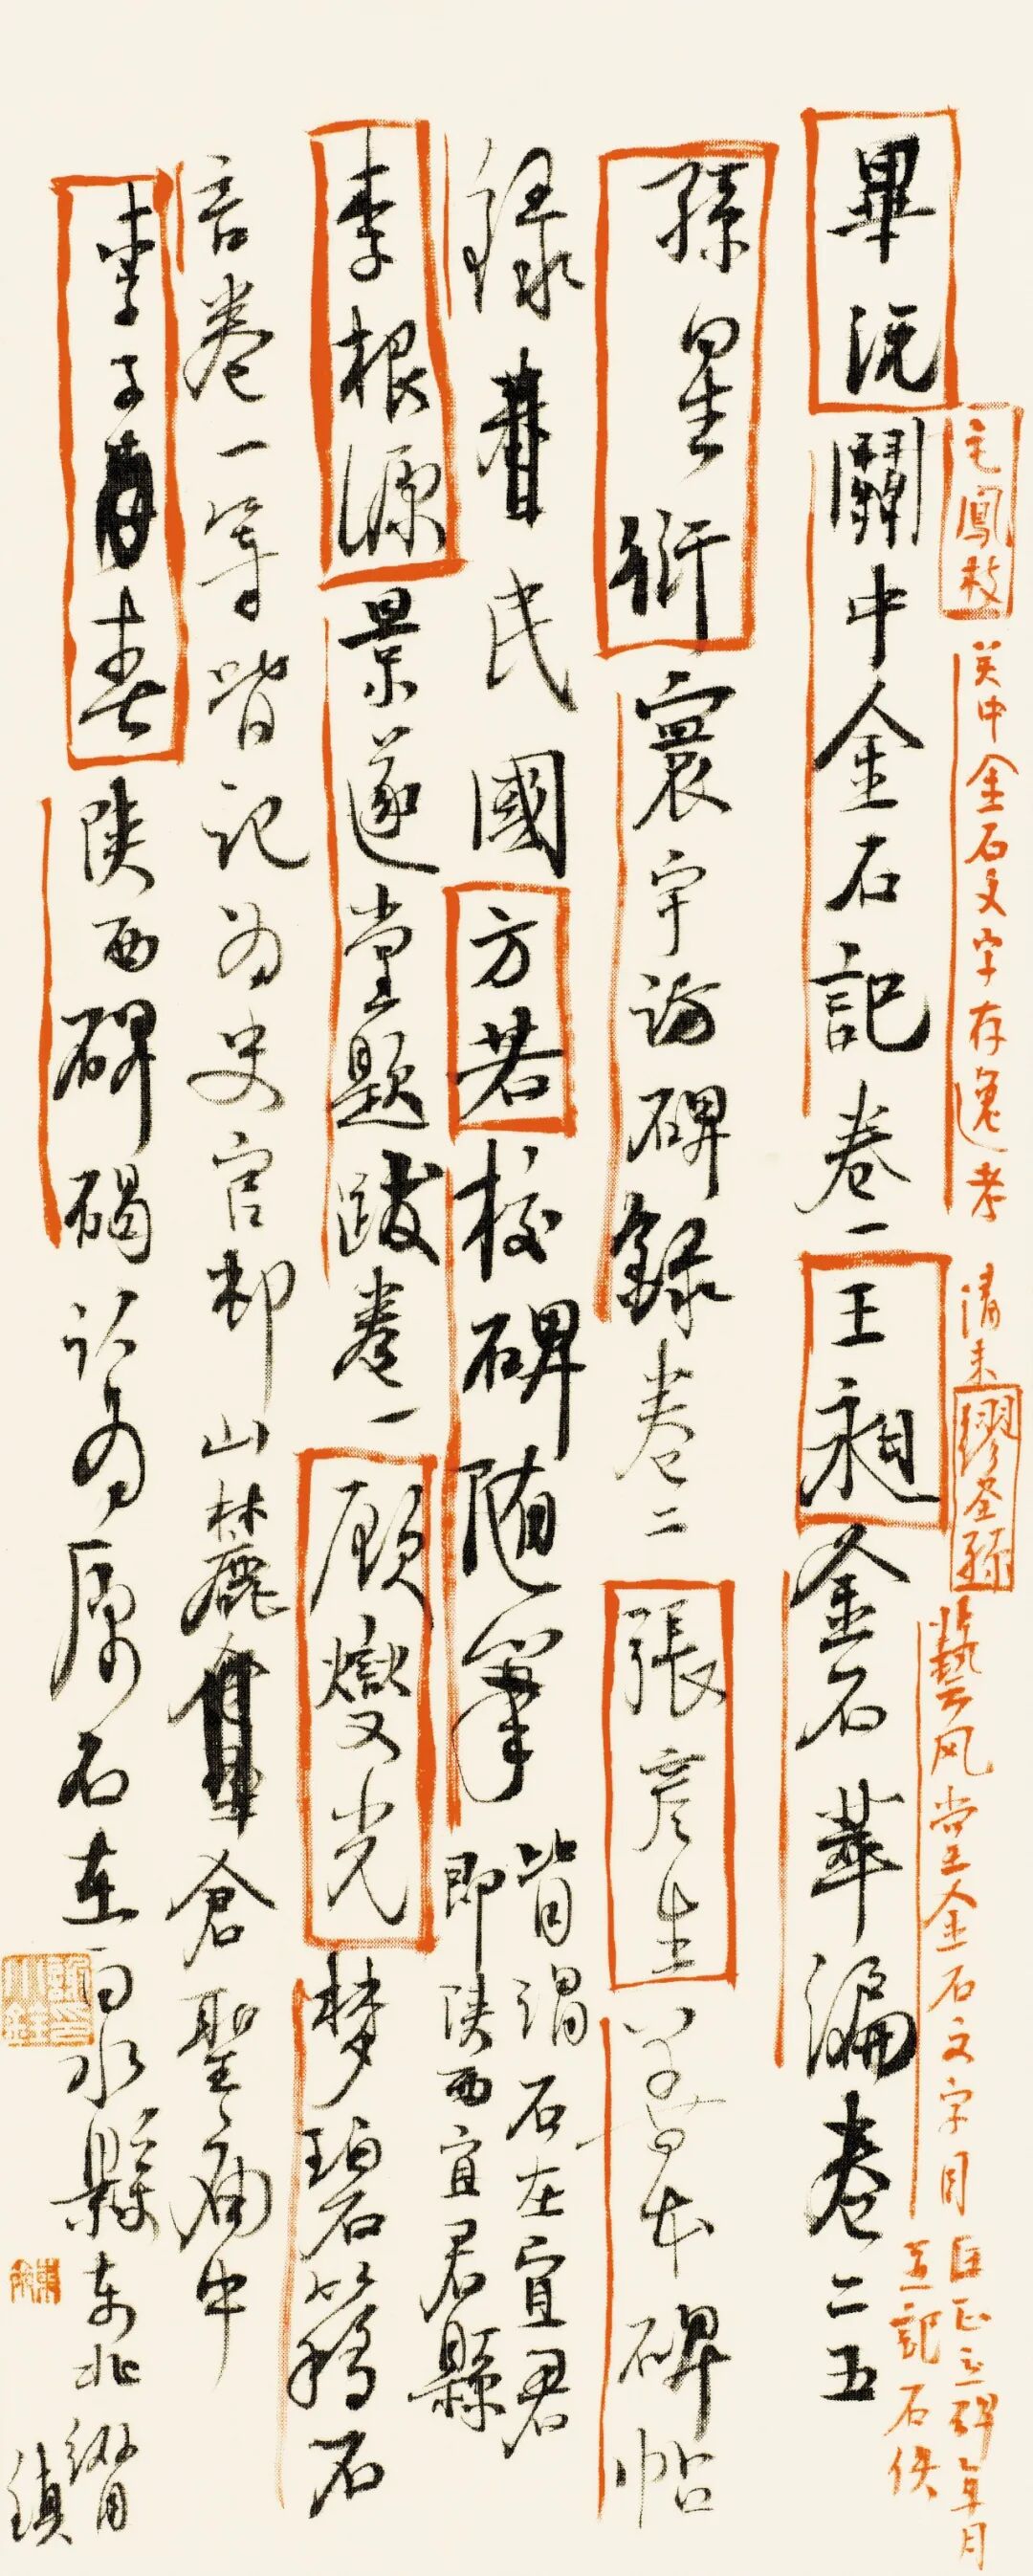 畢沅關中金石記卷一王昶金石萃編卷二五
毛鳳枝关中金石文字存逸考
清末繆荃孫藝风堂金石文字目
立碑年月
並記石佚
孫星衍寰宇訪碑錄卷二張彦生善本碑帖
録民國方若校碑随筆
皆謂石在宜君
即陕西宜君縣
李根源景邃堂題跋卷一顾燮光梦碧簃石
言卷一等皆記为史官邨山麓倉聖廟中
李子春陕西碑碣认为原石在白水縣东北